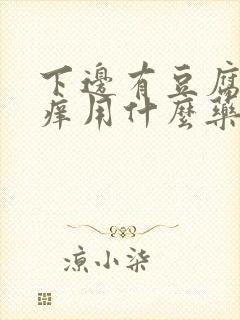 下邊有豆腐
痒用什麼藥
涼小柒